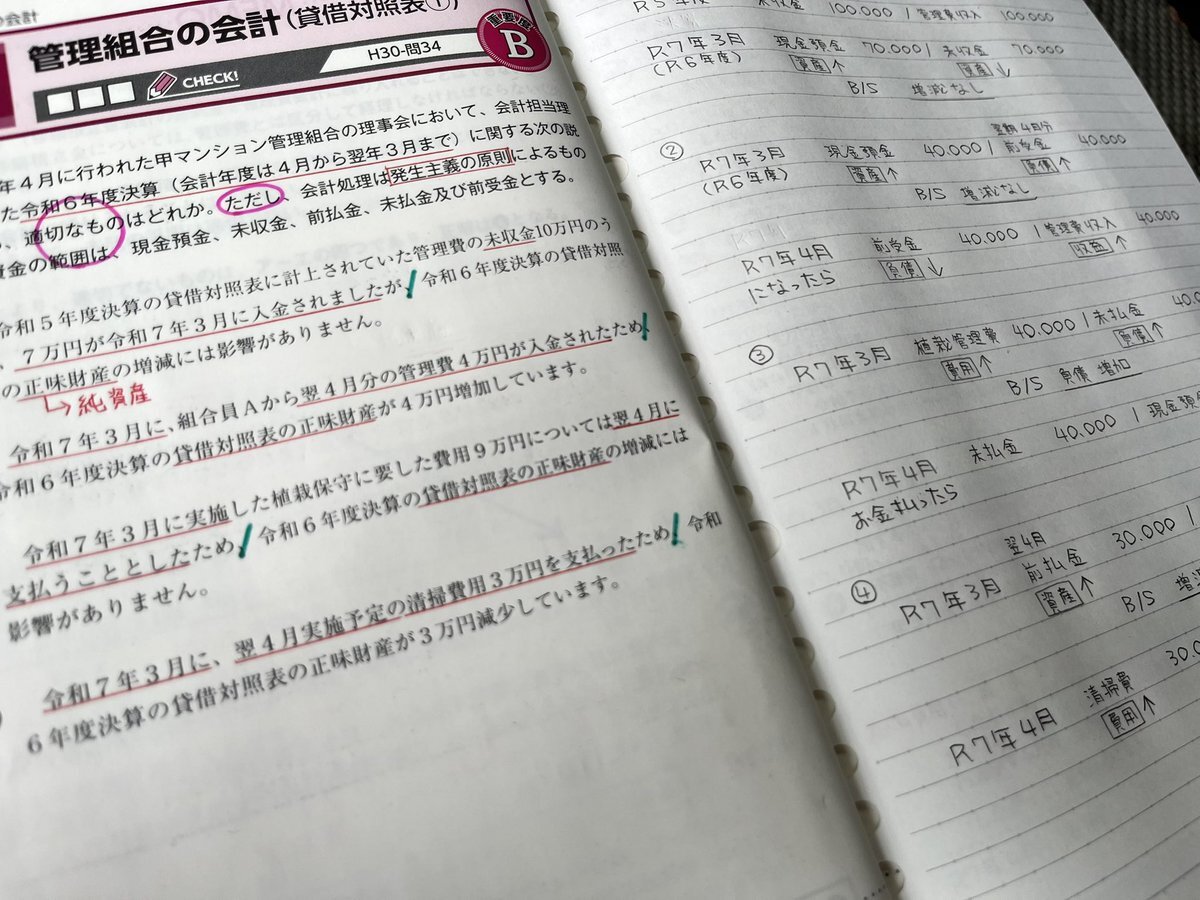 の会計
管理組合の会計(貸借対照表①)
重要度
B
H30-問34
CHECK!
年4月に行われた甲マンション管理組合の理事会において、会計担当理
た令和6年度決算(会計年度は4月から翌年3月まで)に関する次の説
、適切なものはどれか。ただし、会計処理は発生主義の原則によるもの
資金の範囲は、現金預金、未収金、前払金、未払金及び前受金とする。
令和5年度決算の貸借対照表に計上されていた管理費の未収金10万円のう
、7万円が令和7年3月に入金されましたが、令和6年度決算の貸借対照
の正味財産の増減には影響がありません。
↳純資産
令和7年3月に、組合員Aから翌4月分の管理費4万円が入金されたため、
令和6年度決算の貸借対照表の正味財産が4万円増加しています。
令和7年3月に実施した植栽保守に要した費用9万円については翌4月に
支払うこととしたため、令和6年度決算の貸借対照表の正味財産の増減には
影響がありません。
令和7年3月に、翌4月実施予定の清掃費用3万円を支払ったため、令和
6年度決算の貸借対照表の正味財産が3万円減少しています。
R5年度 未収金 100.000 / 管理費収入 100.000
R7年3月 現金預金 70.000 / 未収金 70.000
(R6年度) 資産↑ 資産↓
B/S 増減なし
翌期4月分
② R7年3月 現金預金 40.000 / 前受金 40.000
(R6年度) 資産↑ 負債↑
B/S 増減なし
R7年4月 前受金 40.000 / 管理費収入 40.000
になったら 負債↓ 収益↑
③ R7年3月 植栽管理費 40.000 / 未払金 40.0
費用↑ 負債↑
B/S 負債 増加
R7年4月 未払金 40.000 / 現金預金
お金払ったら
翌4月
④ R7年3月 前払金 30.000 /
資産↑
B/S 増
R7年4月 清掃費 30.0
費用↑